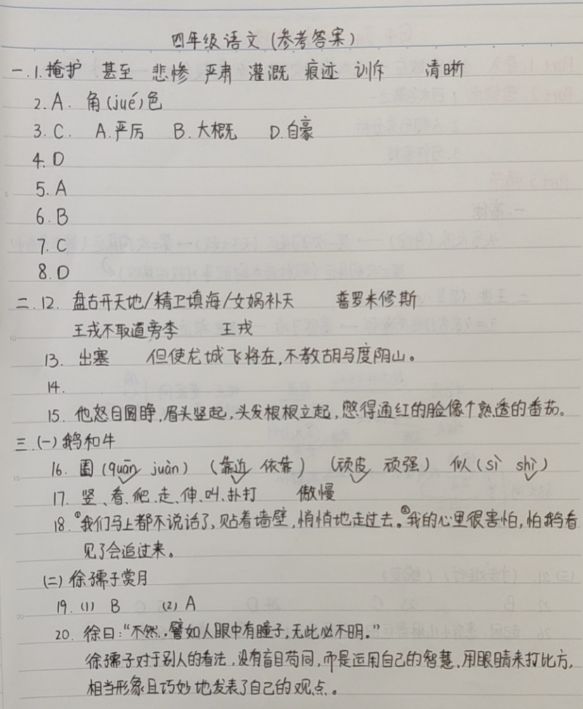 四年级语文(参考答案)
一.1.掩护 甚至 悲惨 严肃 灌溉 痕迹 训斥 清晰
2.A. 角(jué)色
3.C. A.严厉 B.大概 D.自豪
4.D
5.A
6.B
7.C
8.D
二.12. 盘古开天地/精卫填海/女娲补天 普罗米修斯
王戎不取道旁李 王戎
13. 出塞 但使龙城飞将在,不教胡马度阴山。
14.
15. 他怒目圆睁,眉头竖起,头发根根立起,憋得通红的脸像个熟透的番茄。
三.(一)鹅和牛
16. 圈(quān juàn) (靠近 依靠) (顽皮 顽强) 似(sì shì)
17. 竖、看、爬、走、伸、叫、扑打 傲慢
18.①我们马上都不说话了,贴着墙壁,悄悄地走过去。②我的心里很害怕,怕鹅看
见了会追过来。
(二)徐孺子赏月
19.(1) B (2) A
20. 徐曰:“不然,譬如人眼中有瞳子,无此必不明。”
徐孺子对于别人的看法,没有盲目苟同,而是运用自己的智慧,用眼睛来打比方,
相当形象且巧妙地发表了自己的观点。